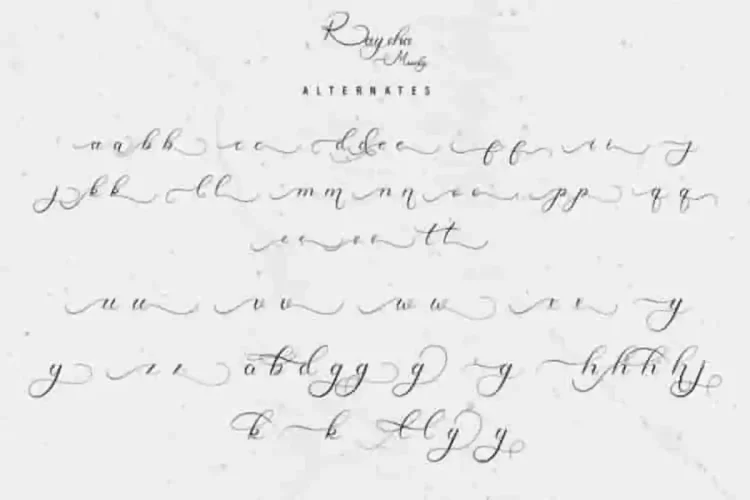 Raysha
ALTERNATES
a a b b c c d d e e f f i i j
j k k l l m m n n o o p p q q
r r s s t t
u u v v w w x x y
y z z a b d g g g g h h h h j
k k t l y y